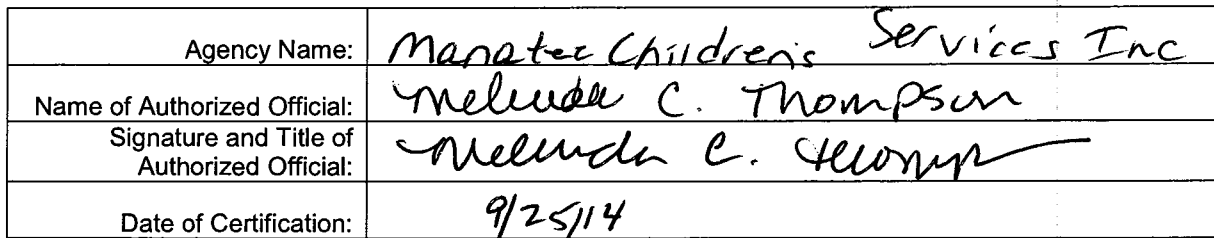 Agency Name: Manatee Children's Services Inc
Name of Authorized Official: Melinda C. Thompson
Signature and Title of
Authorized Official: Melinda C. Thomp
Date of Certification: 9/25/14